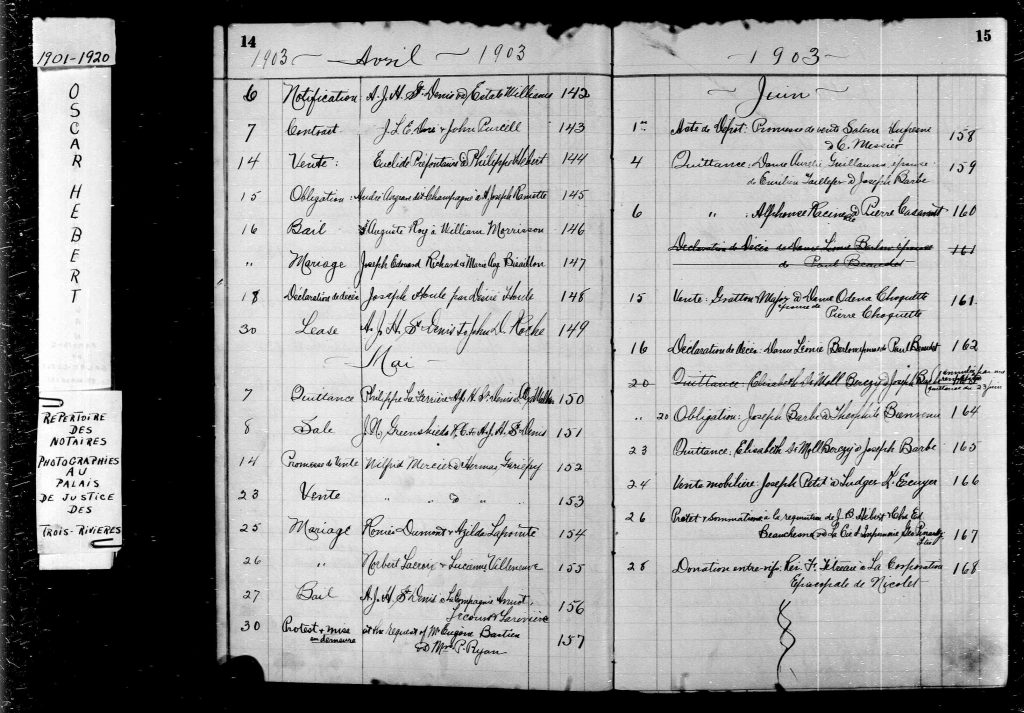 1901-1920
OSCAR HEBERT
REPERTOIRE
DES
NOTAIRES
PHOTOGRAPHIES
AU
PALAIS
DE JUSTICE
DES
TROIS-RIVIERES
14
1903 Avril 1903
6 Notification: A. J. H. St Denis @ Estate Williams 142
7 Contrat J. L. E. Doré & John Purcell 143
14 Vente: Euclide Préfontaine @ Philippe Hébert 144
15 Obligation: André dit Champagne à Joseph 145
16 Bail Auguste Roy à William Morrisson 146
" Mariage Joseph Edouard Richard & Marie 147
18 Déclaration de décès Joseph Houle par Désiré Houle 148
30 Lease A. J. H. St Denis to John D. Roche 149
Mai
7 Quittance Philippe La Ferrière A. J. H. St Denis 150
8 Sale J. N. Greenshields K.C. to A. J. H. St Denis 151
14 Promesse de Vente Wilfrid Mercier @ Hermas Gariépy 152
23 Vente " " @ " 153
25 Mariage Dumont & Lapointe 154
26 " Norbert Lacroix & Lucienne Villeneuve 155
27 Bail A. J. H. St Denis
156
30 Protest & mise at the request of Mr Eugène Bastien
en demeure @ Mrs P. Ryan 157
15
1903
Juin
1er Acte de Dépôt: Promesse de vente Salem Dufresne
@ C. Messier 158
4 Quittance: Dame Aurélie Guillaume, épouse
de Emilien Taillefer @ Joseph Barbe 159
6 " : Alphonse Racine @ Pierre Casavant 160
Declaration de Décès de Dame Léonie Barbeau épouse
de Paul Beaudet 161
15 Vente: Gratton Major @ Dame Odena Choquette
épouse de Pierre Choquette 161.
16 Déclaration de Décès: Dame Léonie épouse de Paul Beaudet 162
20 Quittance: Elisabeth de Moll Berczy @ Joseph
quittance du 23 juin
" 20 Obligation: Joseph Barbe @ Théophile 164
23 Quittance: Elisabeth de Moll Berczy @ Joseph Barbe 165
24 Vente mobilière: Joseph Petit @ Ludger L'Ecuyer 166
26 Protet & Sommation à la requisition de J. B. Hébert & Chs Ed
Beauchesne @ La Cie d'Imprimerie 167
28 Donation entre-vifs: Rév. F. à La Corporation
Episcopale de Nicolet 168